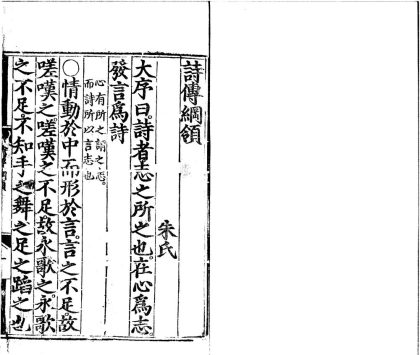 詩傳綱領
朱氏
大序曰。詩者志之所之也。在心爲志。
發言爲詩
心有所之謂之志。
而詩所以言志也
○情動於中而形於言。言之不足。故
嗟嘆之。嗟嘆之不足。故永歌之。永歌
之不足。不知手之舞之足之蹈之也